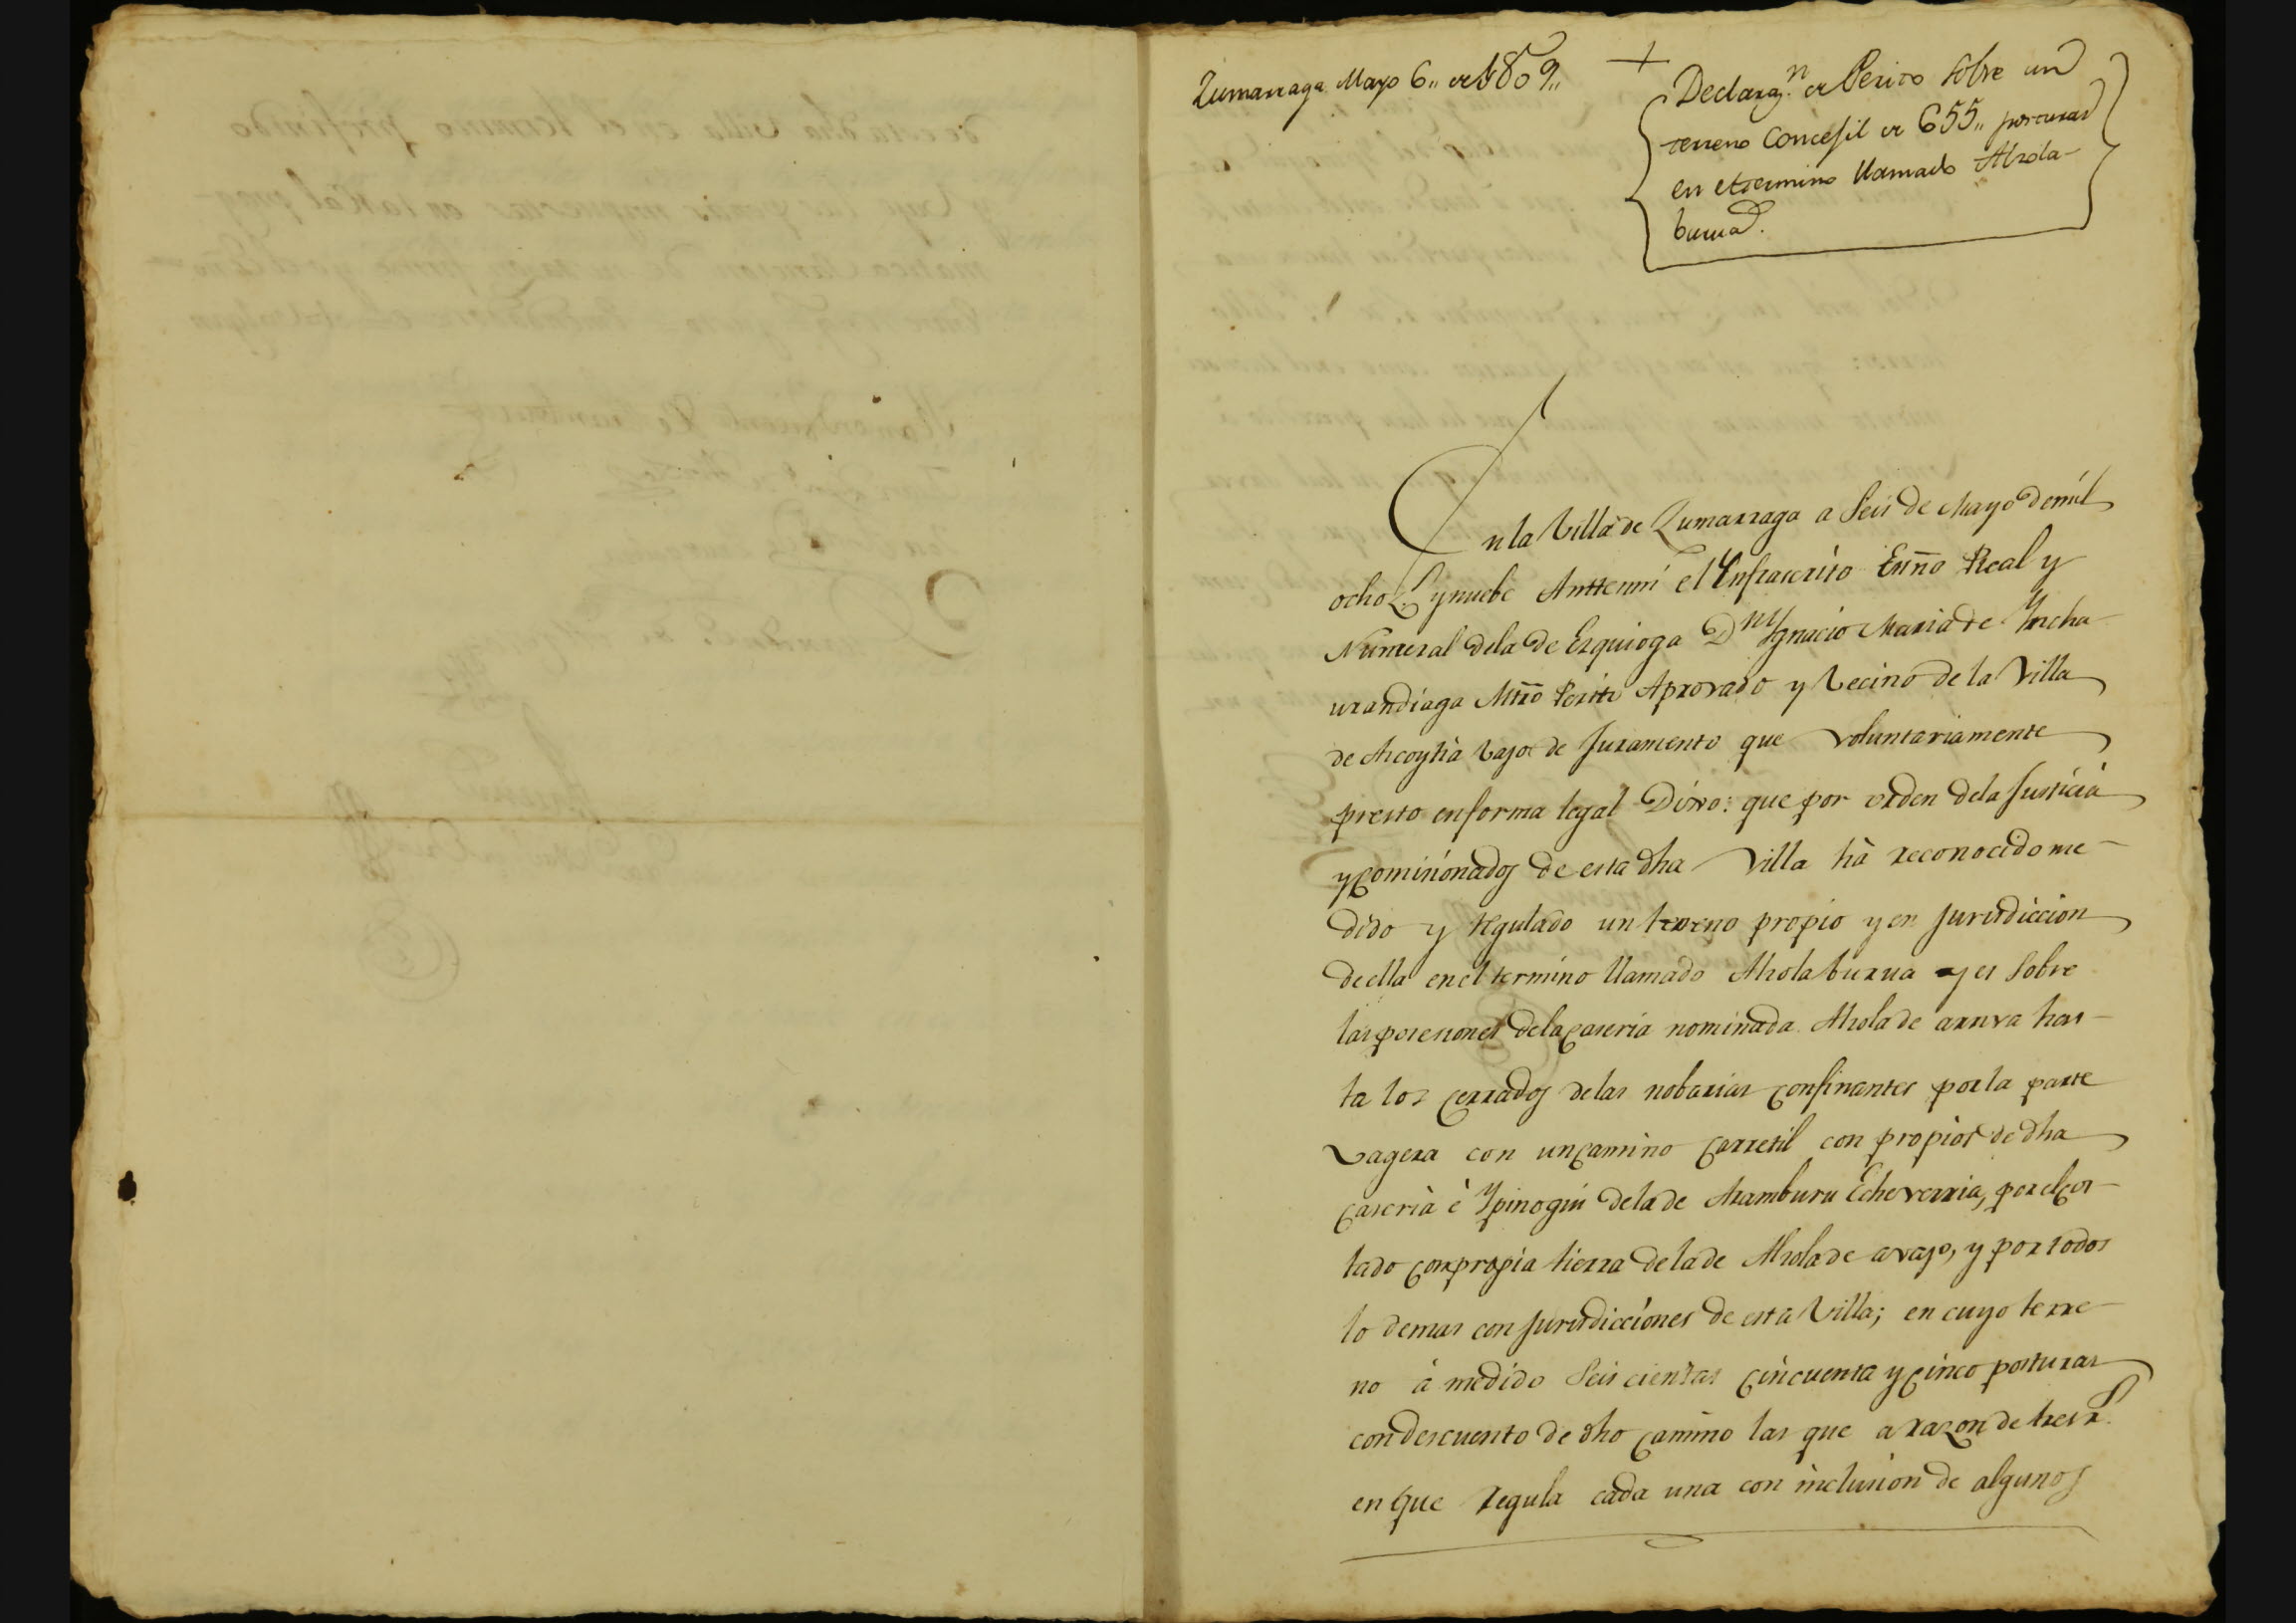 Zumarraga Mayo 6,, de 1809,,
+
Declaraz.n de Perito sobre un
terreno Concejil de 655,, posturas
en el termino llamado Alzola-
burua.
En la Villa de Zumarraga a Seis de Mayo de mil
ocho z.s y nuebe Antte mi el Ynfrascrito Esn̄o Real y
Numeral de la de Ezquioga D.n Ygnacio Maria de Yncha-
urandiaga Mr̄o Perito Aprovado y Vecino de la Villa
de Azcoytia vajo de Juramento que voluntariamente
presto en forma legal Dixo: que por orden de la Justicia
y Comisionados de esta dha Villa hà reconocido me-
dido y regulado un terreno propio y en jurisdiccion
de ella en el termino llamado Alzolaburua y es Sobre
las posesiones de la Caseria nominada Alzola de arriva has-
ta los Cerrados de las nobarias Confinantes por la parte
vagera con un Camino Carretil con propios de dha
Caserià è Ypinogui de la de Aramburu Echeverria, por el Cos-
tado con propia tierra de la de Alzola de avajo, y por todos
lo demas con jurisdicciones de esta Villa; en cuyo terre-
no à medido Seis cientas Cincuenta y Cinco posturas
con descuento de dho Camino las que a razon de tres r.s
en que regula cada una con inclusion de algunos